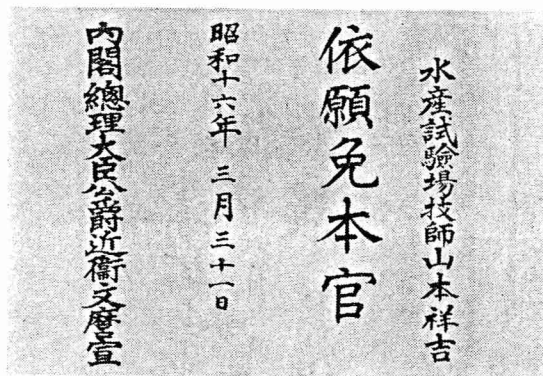 水産試驗場技師山本祥吉
依願免本官
昭和十六年三月三十一日
内閣總理大臣公爵近衞文麿宣